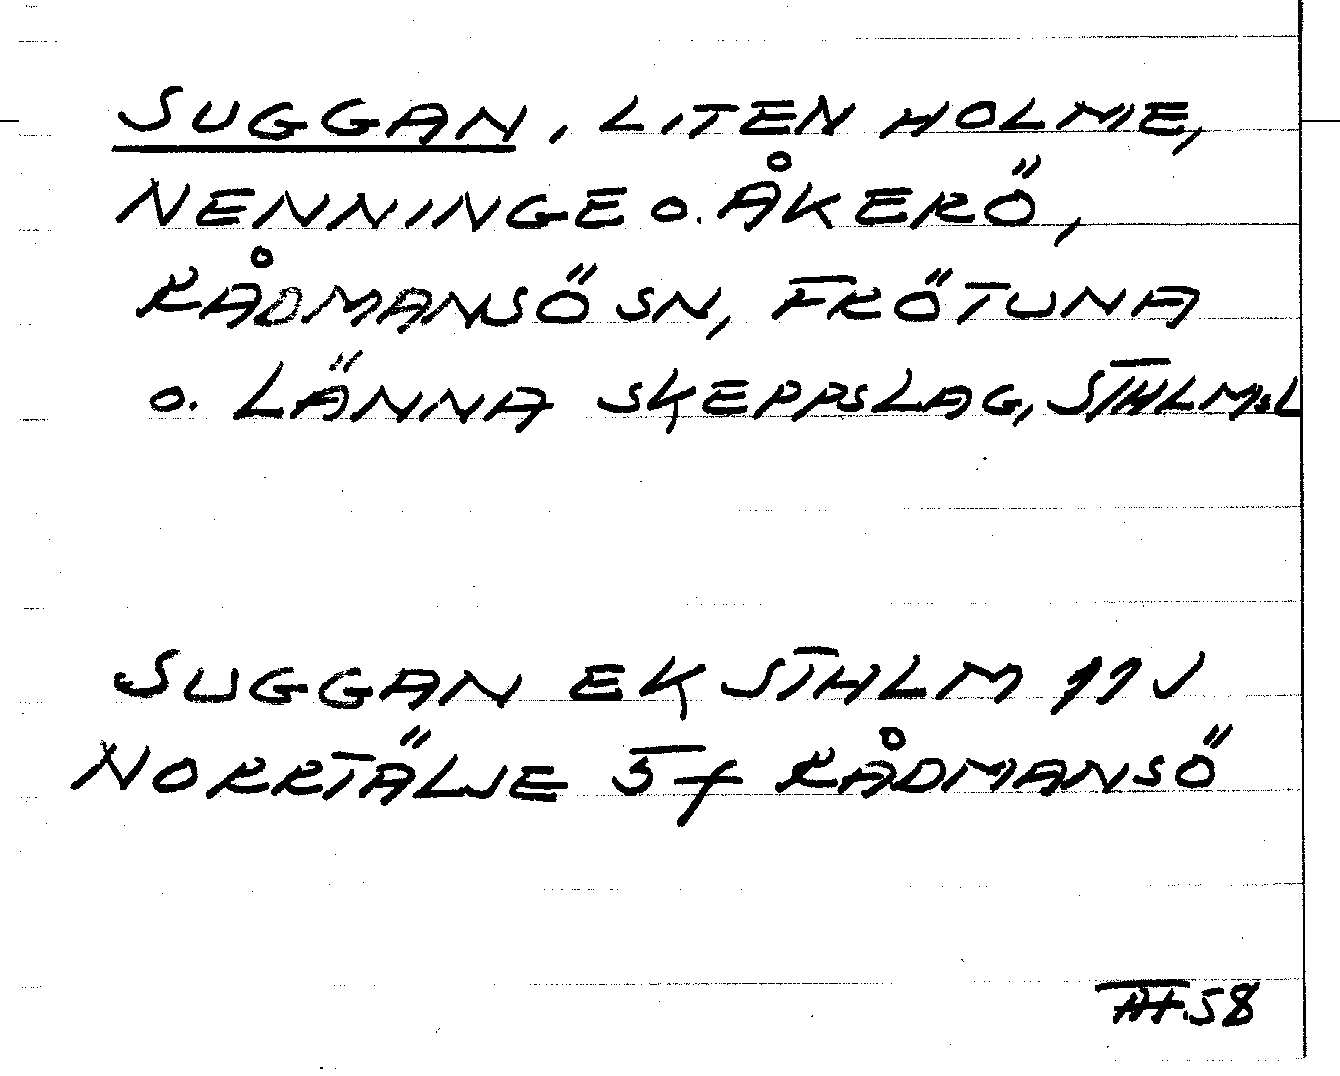 SUGGAN, LITEN HOLME,
NENNINGE O. ÅKERÖ,
RÅDMANSÖ SN, FRÖTUNA
O. LÄNNA SKEPPSLAG, STHLMSL
SUGGAN EK STHLM 11 V
NORRTÄLJE 5f RÅDMANSÖ
58